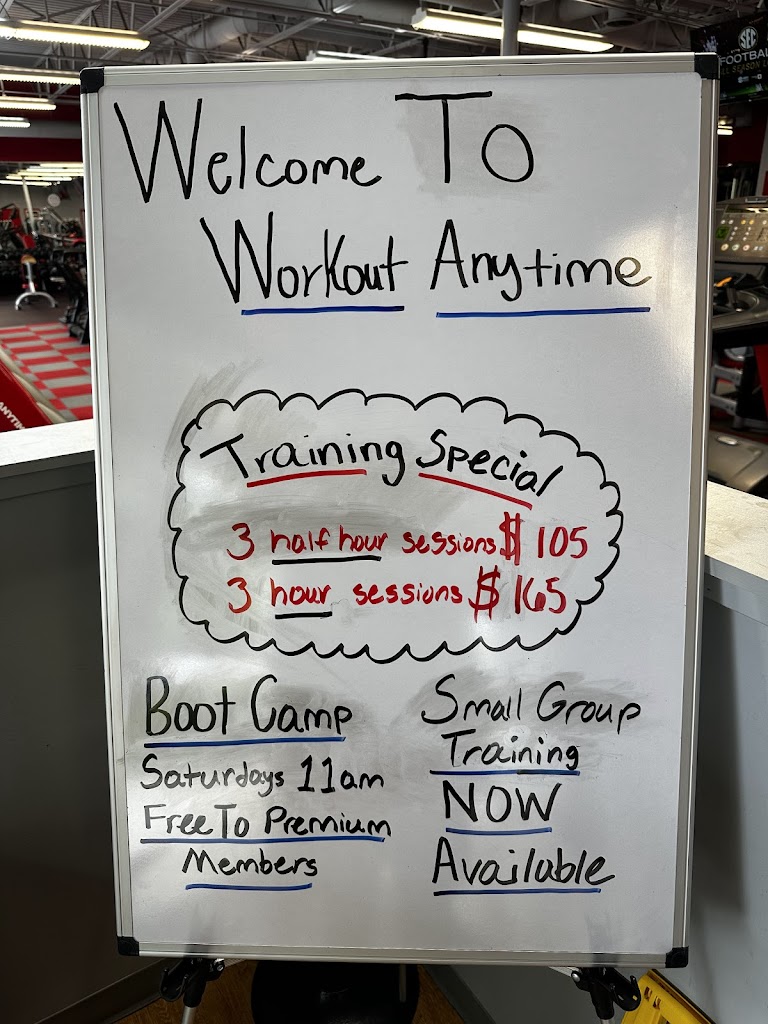 Welcome To
Workout Anytime
Training Special
3 half hour sessions $ 105
3 hour sessions $ 165
Boot Camp
Saturdays 11am
Free To Premium
Members
Small Group
Training
NOW
Available
SEC
FOOTBALL
ANYTIME